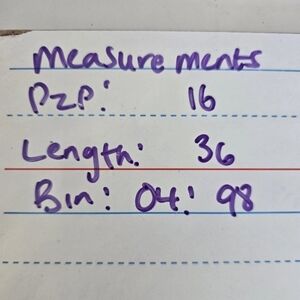 Measurements
P2P: 16
Length: 36
Bin: 04: 98